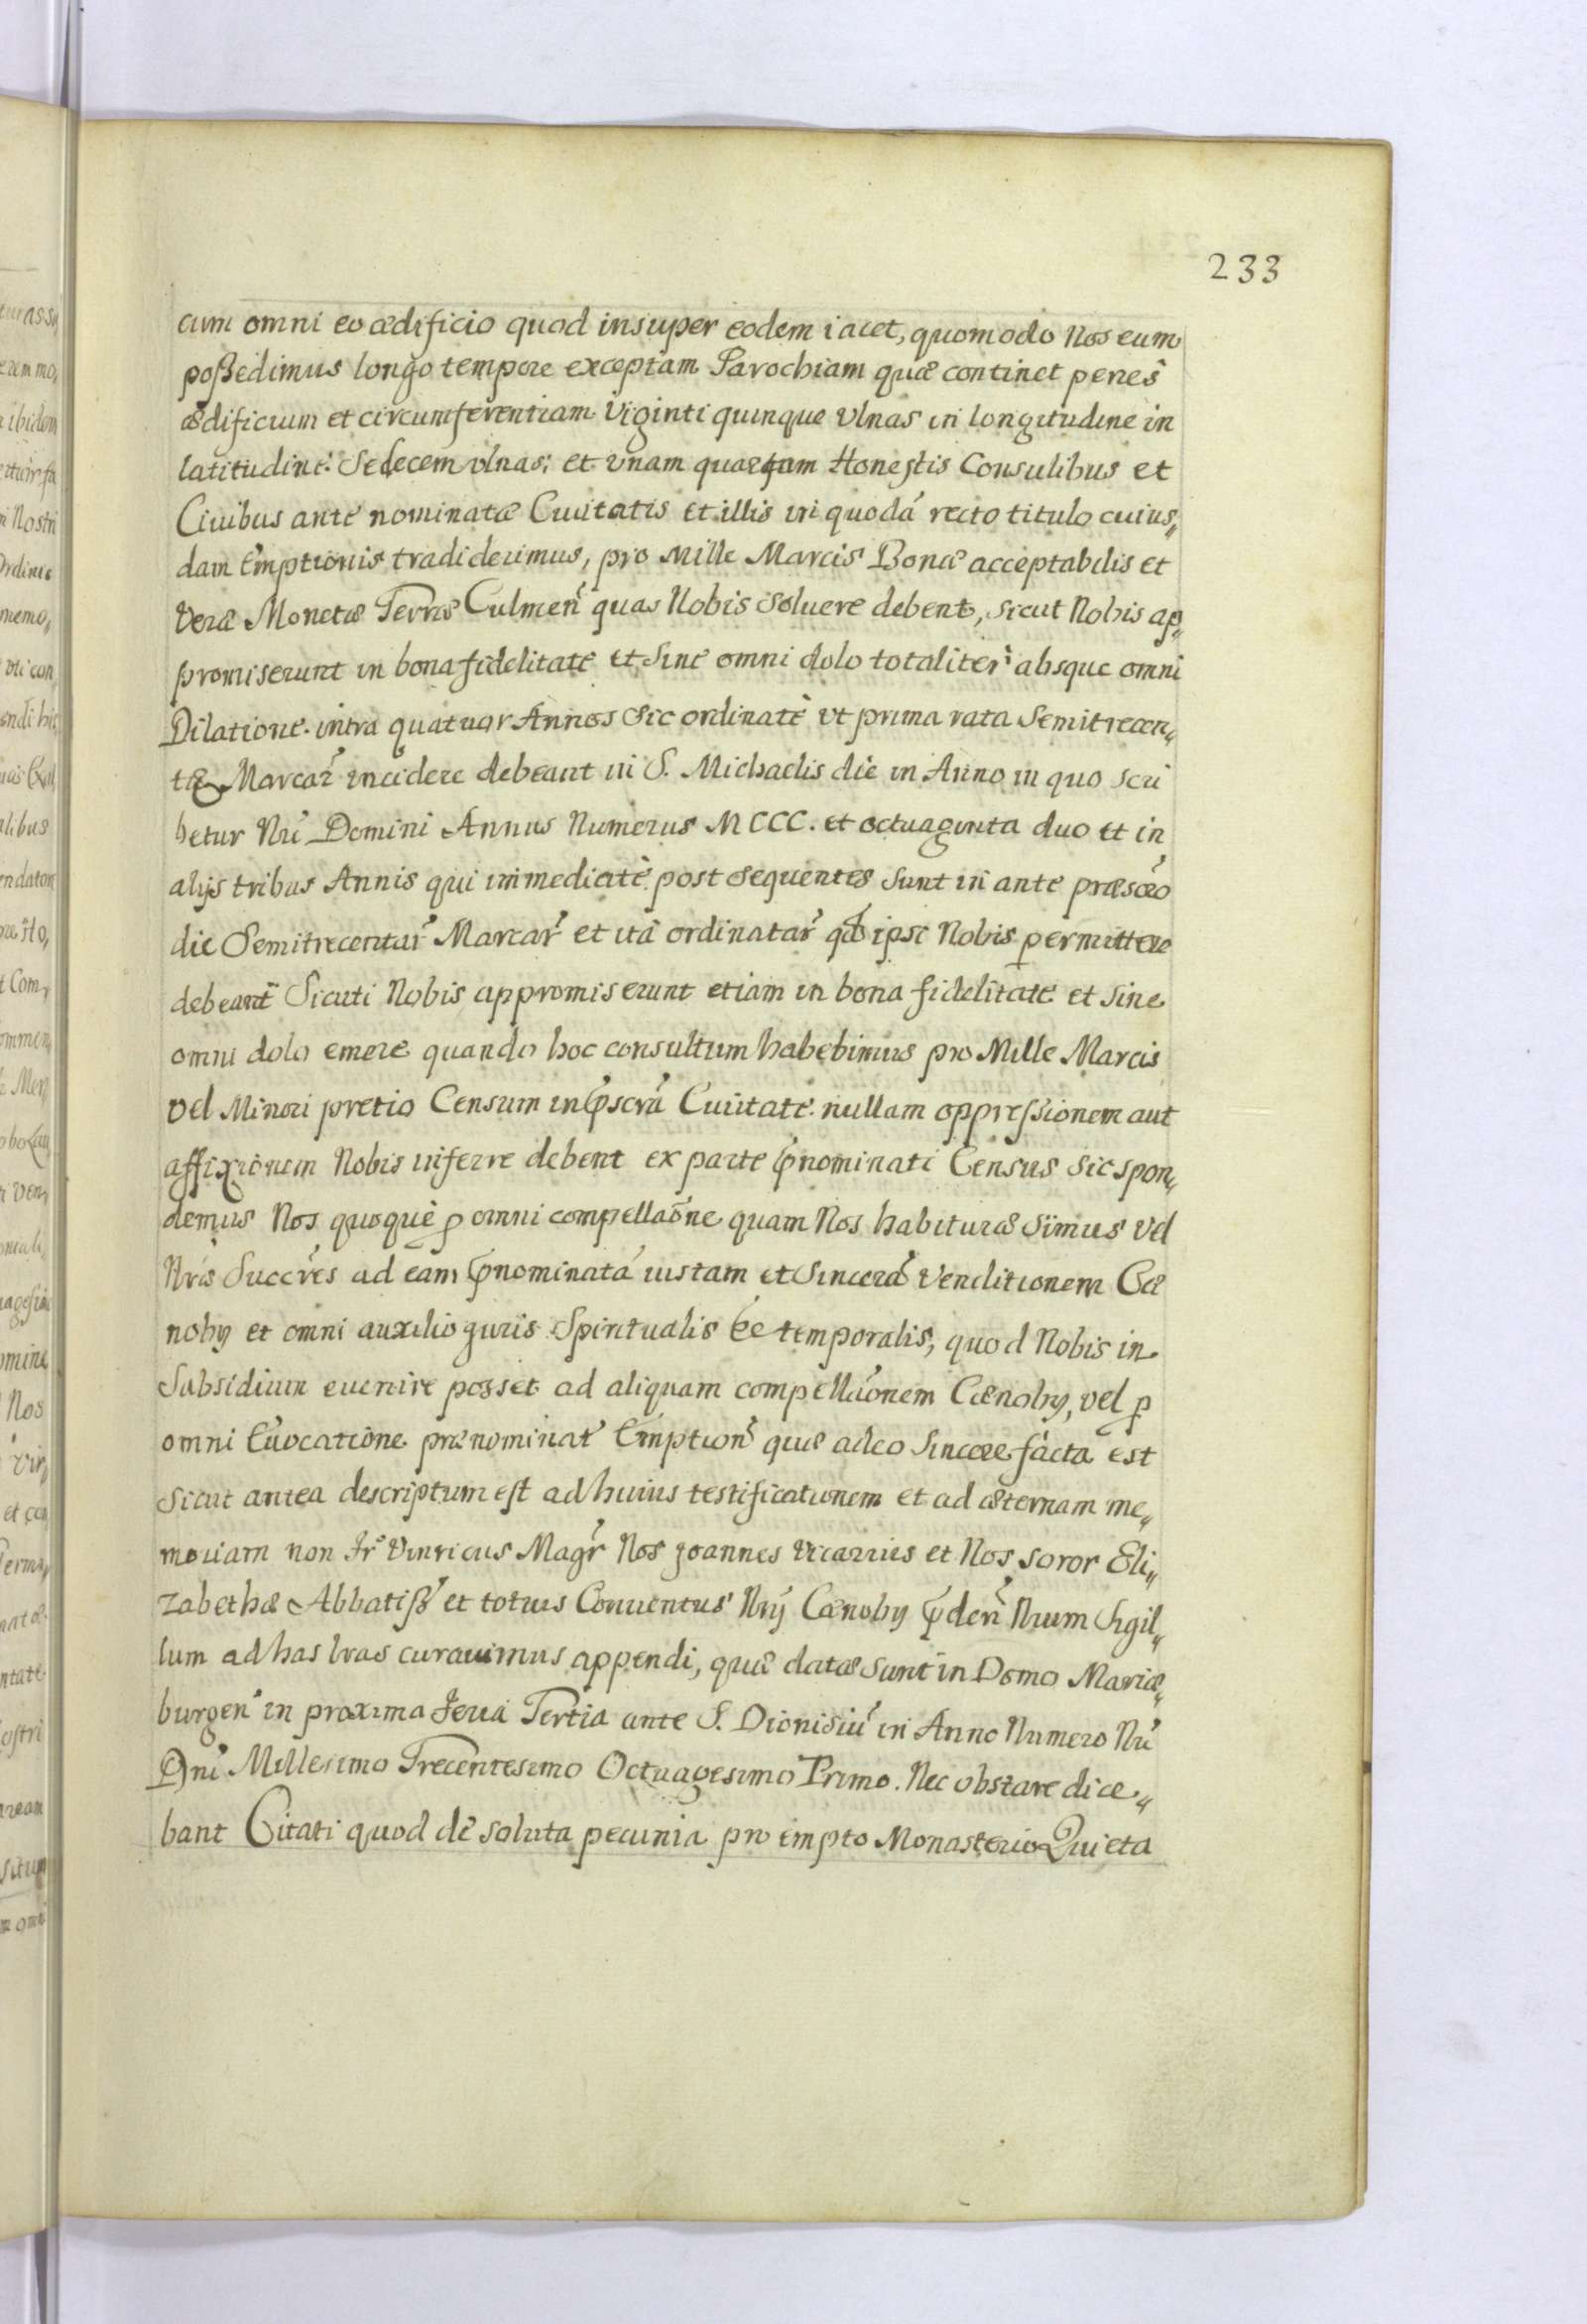 233
cum omni eo ædificio quod insuper eodem iacet, quomodo Nos eum
poßedimus longo tempore exceptam Parochiam quæ continet penes
ædificium et circumferentiam Viginti quinque Vlnas in longitudine in
latitudine: Sedecem vlnas: et vnam quartam Honestis Consulibus et
Ciuibus ante nominatæ Ciuitatis et illis in quodá recto titulo cuius„
dam Emptionis tradiderimus, pro Mille Marcis Bonæ acceptabilis et
Veræ Monetæ Terræ Culmen̄ quas Nobis Soluere debent, sicut Nobis ap„
promiserunt in bona fidelitate et Sine omni dolo totaliter absque omni
Dilatione. intra quatuor Annos Sic ordinatè vt prima rata Semitrecen„
tæ Marcar̄ incidere debeant in S. Michaelis die in Anno in quo scri
betur Nr̄i Domini Annus Numerus MCCC. et octuaginta duo et in
alijs tribus Annis qui immediatè post Sequentes Sunt in ante præscr̄o
die Semitrecentar̄ Marcar̄ et ità ordinatar̄ qd̄ ipsi Nobis permittere
debeant Sicuti Nobis appromiserunt etiam in bona fidelitate et Sine
omni dolo emere quando hoc consultum habebimus pro Mille Marcis
vel Minori pretio Censum in p̄scrá Ciuitate nullam oppressionem aut
affixionem Nobis inferre debent ex parte p̄nominati Census Sic spon„
demus Nos quoquè p̱ omni compellaōne quam Nos habituræ Simus vel
Nr̄is Succr̄es ad eam p̄nominatá iustam et Sincerá Venditionem Cæ
nobij et omni auxilio iuris Spiritualis et temporalis, quod Nobis in
Subsidium euenire posset ad aliquam compellāonem Cænobij, vel p̱
omni Euocatione prænominat̄ Emption̄ quæ adeo Sincere facta est
Sicut antea descriptum est ad huius testificationem et ad æternam me„
moriam non Fr̄ Vinricus Magr̄ Nos Joannes Vicarius et Nos soror Eli„
zabethæ Abbatiß et totius Conuentus Nrīj Cænobij p̄den̄ Nrum Sigil„
lum ad has lras curauimus appendi, quæ datæ Sunt in Domo Mariæ„
burgen̄ in proxima Feria Tertia ante S. Dionisiū in Anno Numero Nr̄i
Dni Millesimo Trecentesimo Octuagesimo Primo. Nec obstare dice„
bant Citati quod de soluta pecunia pro empto Monasterio Quieta